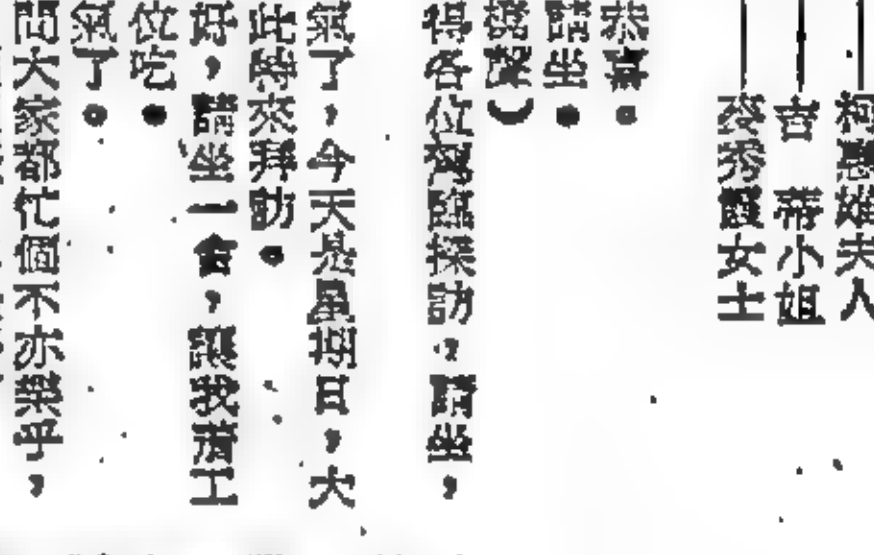 柯夫人
吉蒂小姐
麥秀霞女士
恭喜。
請坐。
得各位探訪,請坐,
氣了,今天是星期日,大
此時來拜訪。
好,請坐一會,讓我着工
位吃。
氣了。
間大家都忙個不亦樂乎,